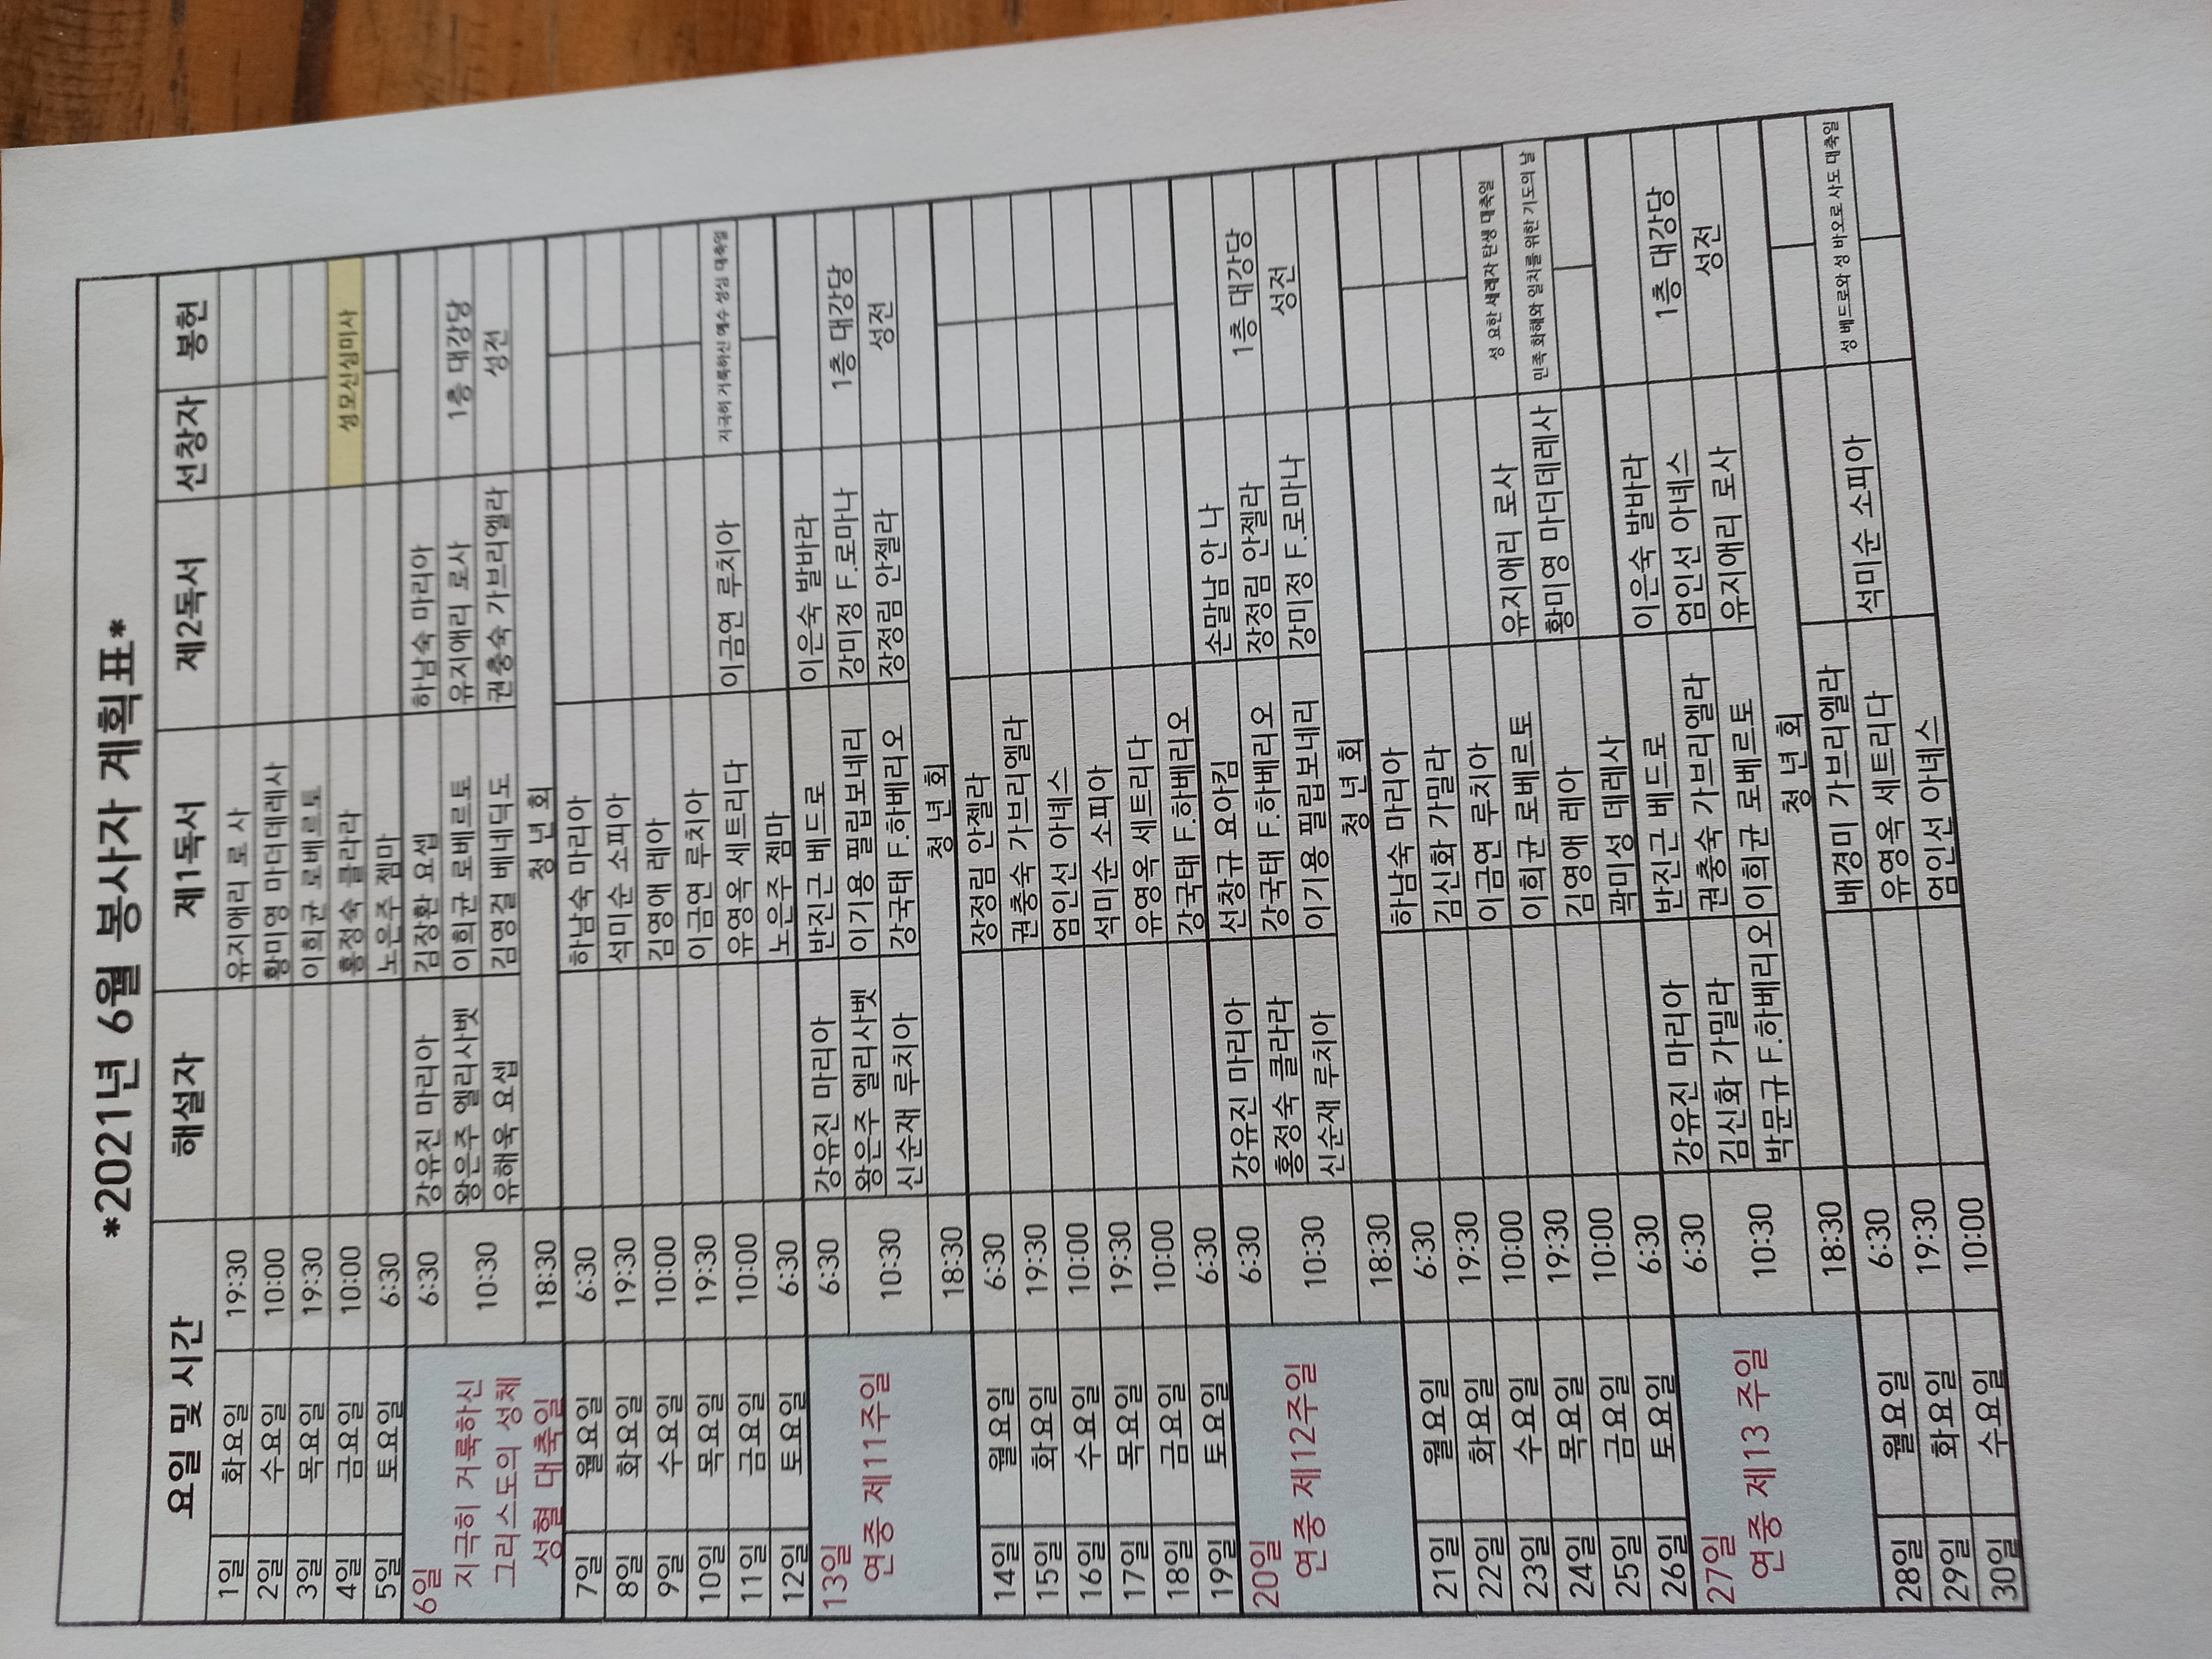 *2021년 6월 봉사자 계획표*
요일 및 시간 해설자 제1독서 제2독서 선창자 봉헌
1일 화요일 19:30 유지애리 로 사
2일 수요일 10:00 황미영 마더데레사
3일 목요일 19:30 이희균 로베르토
4일 금요일 10:00 홍정숙 클라라 성모신심미사
5일 토요일 6:30 노은주 젬마
6일 6:30 강유진 마리아 김장환 요셉 하남숙 마리아
지극히 거룩하신 그리스도의 성체 성혈 대축일 10:30 왕은주 엘리사벳 이희균 로베르토 유지애리 로사 1층 대강당
유해욱 요셉 김영걸 베네딕도 권충숙 가브리엘라 성전
18:30 청 년 회
7일 월요일 6:30 하남숙 마리아
8일 화요일 19:30 석미순 소피아
9일 수요일 10:00 김영애 레아
10일 목요일 19:30 이금연 루치아
11일 금요일 10:00 유영옥 세트리다 이금연 루치아 지극히 거룩하신 예수 성심 대축일
12일 토요일 6:30 노은주 젬마
13일 6:30 강유진 마리아 반진근 베드로 이은숙 발바라
연중 제11주일 10:30 왕은주 엘리사벳 이기용 필립보네리 강미정 F.로마나 1층 대강당
신순재 루치아 강국태 F.하베리오 장정림 안젤라 성전
18:30 청 년 회
14일 월요일 6:30 장정림 안젤라
15일 화요일 19:30 권충숙 가브리엘라
16일 수요일 10:00 엄인선 아녜스
17일 목요일 19:30 석미순 소피아
18일 금요일 10:00 유영옥 세트리다
19일 토요일 6:30 강국태 F.하베리오
20일 6:30 강유진 마리아 선창규 요아킴 손말남 안 나
연중 제12주일 10:30 홍정숙 클라라 강국태 F.하베리오 장정림 안젤라 1층 대강당
신순재 루치아 이기용 필립보네리 강미정 F.로마나 성전
18:30 청 년 회
21일 월요일 6:30 하남숙 마리아
22일 화요일 19:30 김신화 가밀라
23일 수요일 10:00 이금연 루치아
24일 목요일 19:30 이희균 로베르토 유지애리 로사 성 요한 세례자 탄생 대축일
25일 금요일 10:00 김영애 레아 황미영 마더데레사 민족 화해와 일치를 위한 기도의 날
26일 토요일 6:30 곽미성 데레사
27일 6:30 강유진 마리아 반진근 베드로 이은숙 발바라
연중 제13 주일 10:30 김신화 가밀라 권충숙 가브리엘라 엄인선 아녜스 1층 대강당
박문규 F.하베리오 이희균 로베르토 유지애리 로사 성전
18:30 청 년 회
28일 월요일 6:30 배경미 가브리엘라
29일 화요일 19:30 유영옥 세트리다 석미순 소피아 성 베드로와 성 바오로 사도 대축일
30일 수요일 10:00 엄인선 아녜스